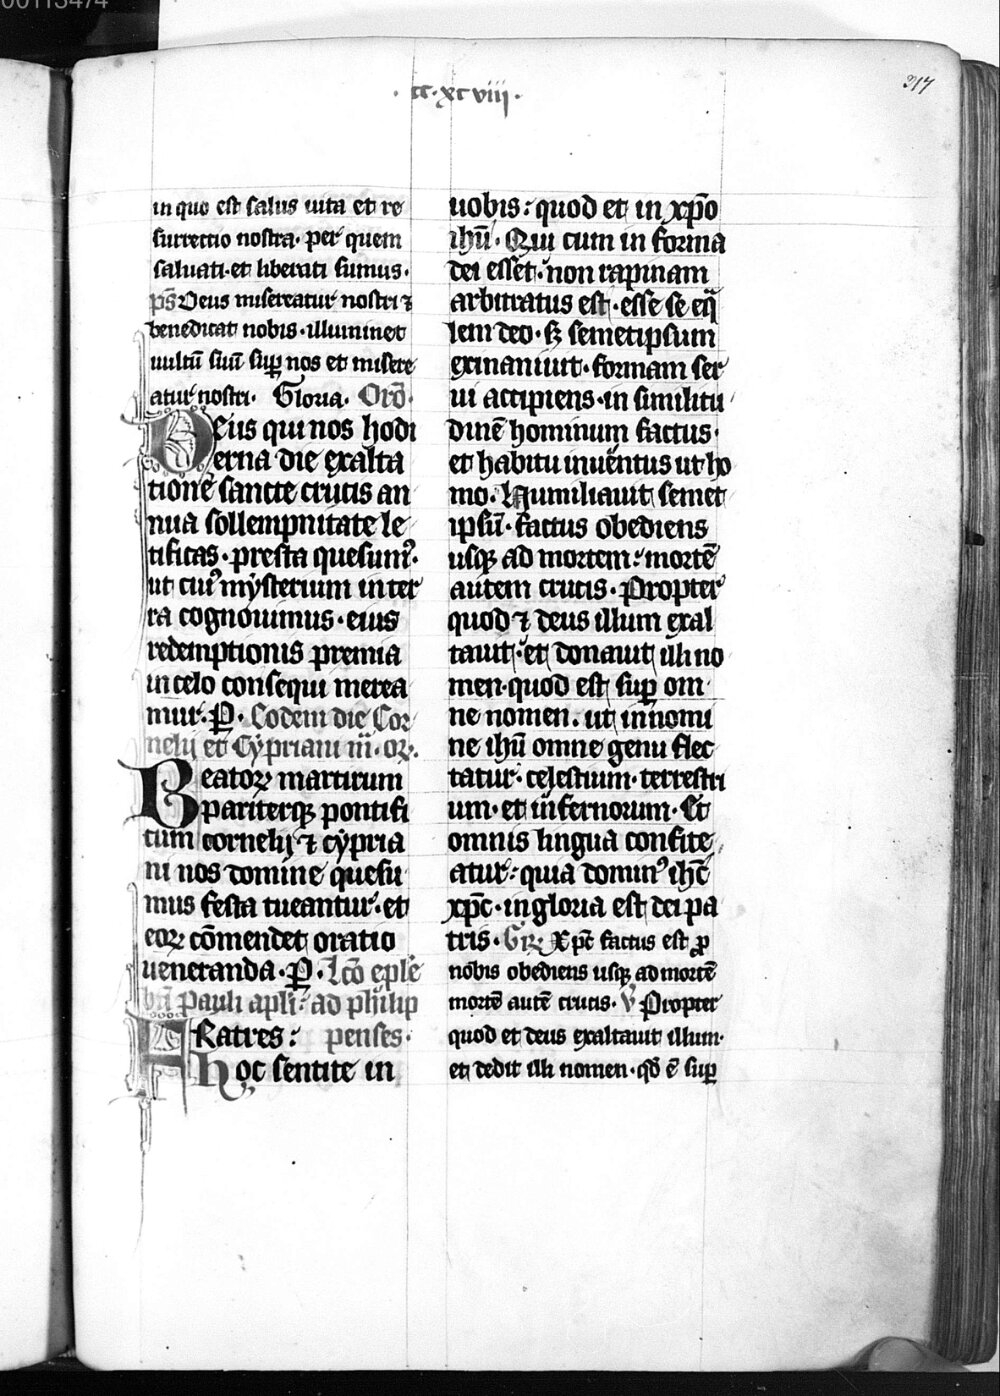 00113474
·cc·xcviii·
317
in quo est salus uita et re
surrectio nostra· per quem
saluati·et liberati sumus·
ps̄ Deus misereatur nostri ⁊
benedicat nobis·illuminet
uultū suū suꝑ nos et misere
atur nostri. Gloria. Orō·
Deus qui nos hodi
erna die exalta
tione sancte crucis an
nua sollempnitate le
tificas·presta quesumꝰ·
ut cuiꝰ mysterium in ter
ra cognouimus·eius
redemptionis premia
in celo consequi merea
mur. P̱. Eodem die Cor
nelij et Cypriani m̄·oꝝ.
Beatoꝝ martirum
pariterqꝫ pontifi
cum cornelij ⁊ cypria
ni nos domine quesu
mus festa tueantur·et
eoꝝ cōmendet oratio
ueneranda·P̱·Lcō eplē
bti pauli apli: ad philip
FRatres: penses·
hoc sentite in
uobis: quod et in xp̄o
ihū·Qui cum in forma
dei esset·non rapinam
arbitratus est·esse se eq̄
lem deo·sꝫ semetipsum
exinaniuit·formam ser
ui accipiens·in similitu
dinē hominum factus·
et habitu inuentus ut ho
mo·Humiliauit semet
ipsū·factus obediens
usqꝫ ad mortem: mortē
autem crucis·Propter
quod ⁊ deus illum exal
tauit·et donauit illi no
men·quod est suꝑ om
ne nomen. ut in nomi
ne ihū omne genu flec
tatur·celestium·terrestri
um·et infernorum·Et
omnis lingua confite
atur: quia dominꝰ ihc̄
xp̄c·in gloria est dei pa
tris·Gꝛ̄ Xp̄c factus est ꝓ
nobis obediens usqꝫ ad mortē
mortē autē crucis. ℣ Propter
quod et deus exaltauit illum·
et dedit illi nomen·qd̄ ē suꝑ